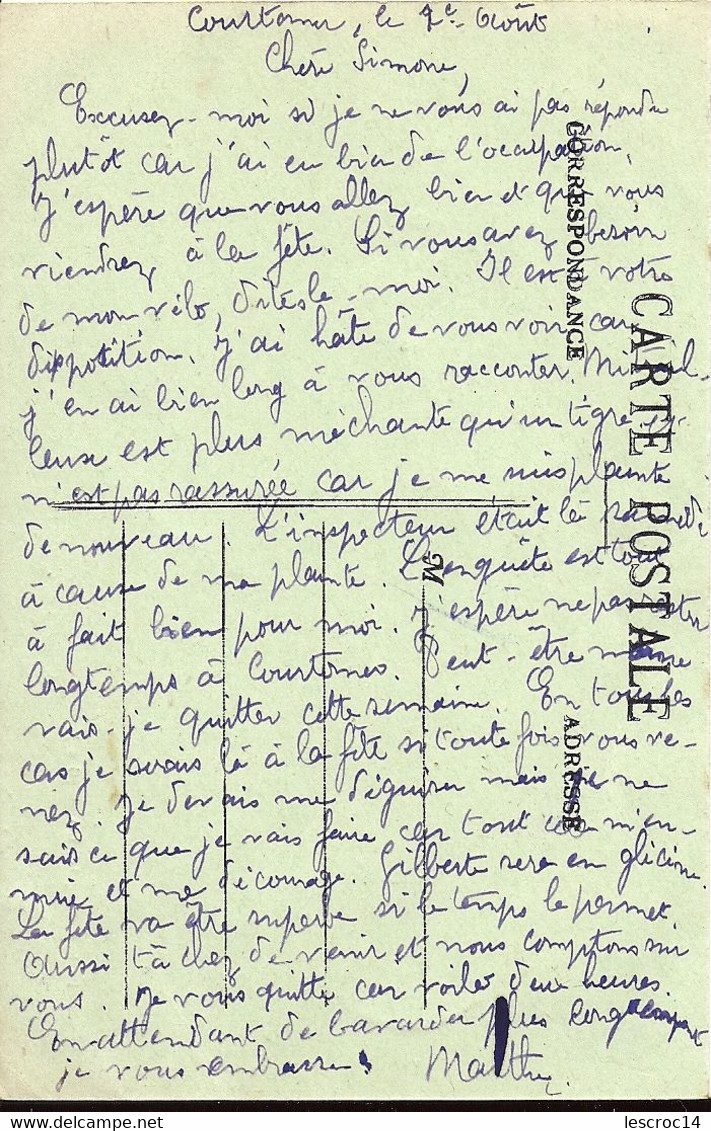 Courtomer, le 2e Août
Chère Simone,
Excusez-moi si je ne vous ai pas répondu
plutôt car j'ai eu bien de l'occupation.
J'espère que vous allez bien et que vous
viendrez à la fête. Si vous avez besoin
de mon vélo, dites le-moi. Il est à votre
disposition. J'ai hâte de vous voir car
j'en ai bien long à vous raconter.
leuse est plus méchante qu'un tigre
n'est pas rassurée car je me suis plainte
de nouveau. L'inspecteur était là samedi
à cause de ma plainte. L'enquête est tout
à fait bien pour moi. J'espère ne pas rester
longtemps à Courtomer. Peut-être même
vais-je quitter cette semaine. En tous les
cas je serais là à la fête si toutefois vous ve-
nez. Je devais me déguiser mais je ne
sais ce que je vais faire car tout m'en-
nuie et me décourage. Gilberte sera en glicine.
La fête va être superbe si le temps le permet.
Aussi tâchez de venir et nous comptons sur
vous. Je vous quitte car voilà deux heures.
En attendant de bavarder plus longuement
je vous embrasse.
CORRESPONDANCE
CARTE POSTALE
M
ADRESSE
lescroc14